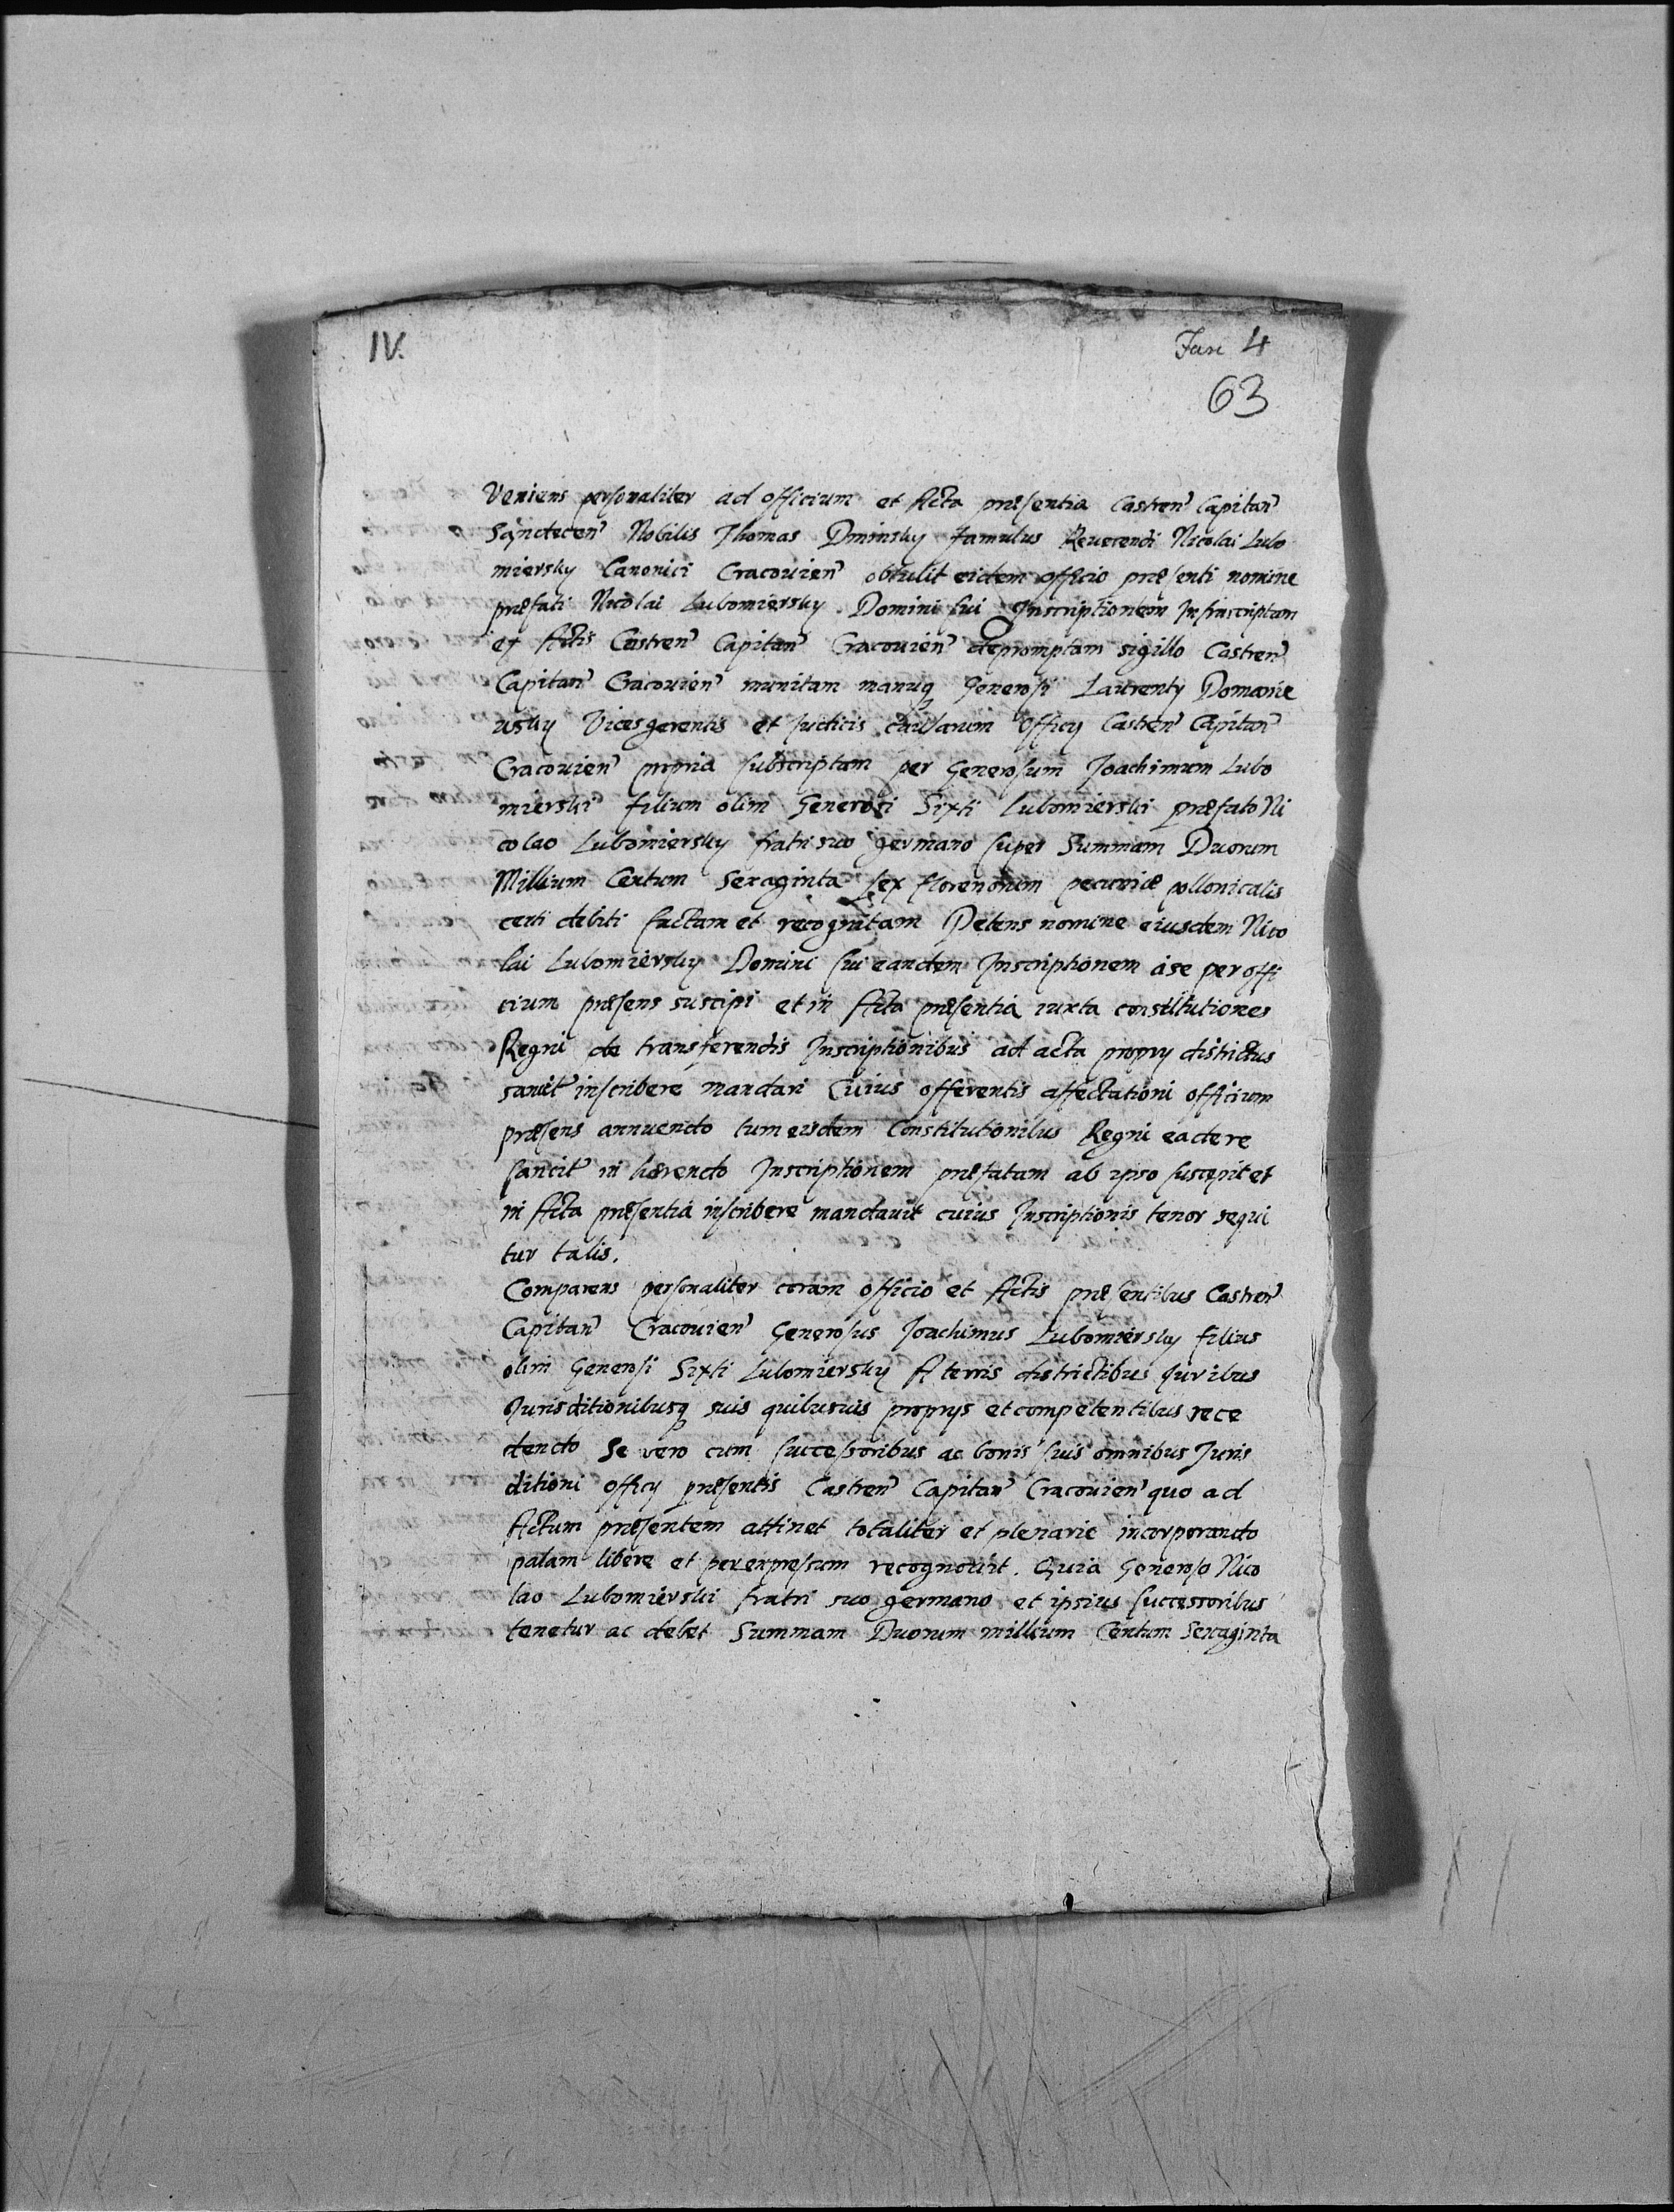 IV.
Fasc 4
63
Veniens personaliter ad officium et Acta præsentia Castren Capitan
Sandecen Nobilis Thomas Dminsky famulus Reuerendi Nicolai Lubo
miersky Canonici Cracouien obtulit eidem officio præsenti nomine
præfati Nicolai Lubomiersky Domini sui Inscriptionem Infrascriptam
ex Actis Castren Capitan Cracouien depromptam sigillo Castren
Capitan Cracouien munitam manuq Generosi Laurenty Domanie
wsky Vicesgerentis et Judicis causarum Officy Castren Capitan
Cracouien propria subscriptam per Generosum Joachimum Lubo
mierski filium olim Generosi Sixti Lubomierski præfato Ni
colao Lubomiersky fratri suo germano super Summam Duorum
Millium Centum Sexaginta sex florenorum pecuniæ pollonicalis
certi debiti factam et recognitam Petens nomine eiusdem Nico
lai Lubomiersky Domini sui eandem Inscriptionem a se per offi
cium præsens suscipi et in Acta præsentia iuxta constitutiones
Regni de transferendis Inscriptionibus ad acta propry districtus
sancit inscribere mandari Cuius offerentis affectationi officium
præsens annuendo tum eisdem Constitutionibus Regni ea de re
sancit in hærendo Inscriptionem præfatam ab ipso suscepit et
in Acta præsentia inscribere mandauit cuius Inscriptionis tenor sequi
tur talis.
Comparens personaliter coram officio et Actis præsentibus Castren
Capitan Cracouien Generosus Joachimus Lubomiersky filius
olim Generosi Sixti Lubomiersky A terris districtibus Juribus
Jurisditionibusq suis quibusuis proprys et competentibus rece
dendo Se vero cum successoribus ac bonis suis omnibus Juris
ditioni officy præsentis Castren Capitan Cracouien quo ad
Actum præsentem attinet totaliter et plenarie incorporando
palam libere et per expressum recognouit. Quia Generoso Nico
lao Lubomierski fratri suo germano et ipsius successoribus
tenetur ac debet Summam Duorum millium Centum Sexaginta